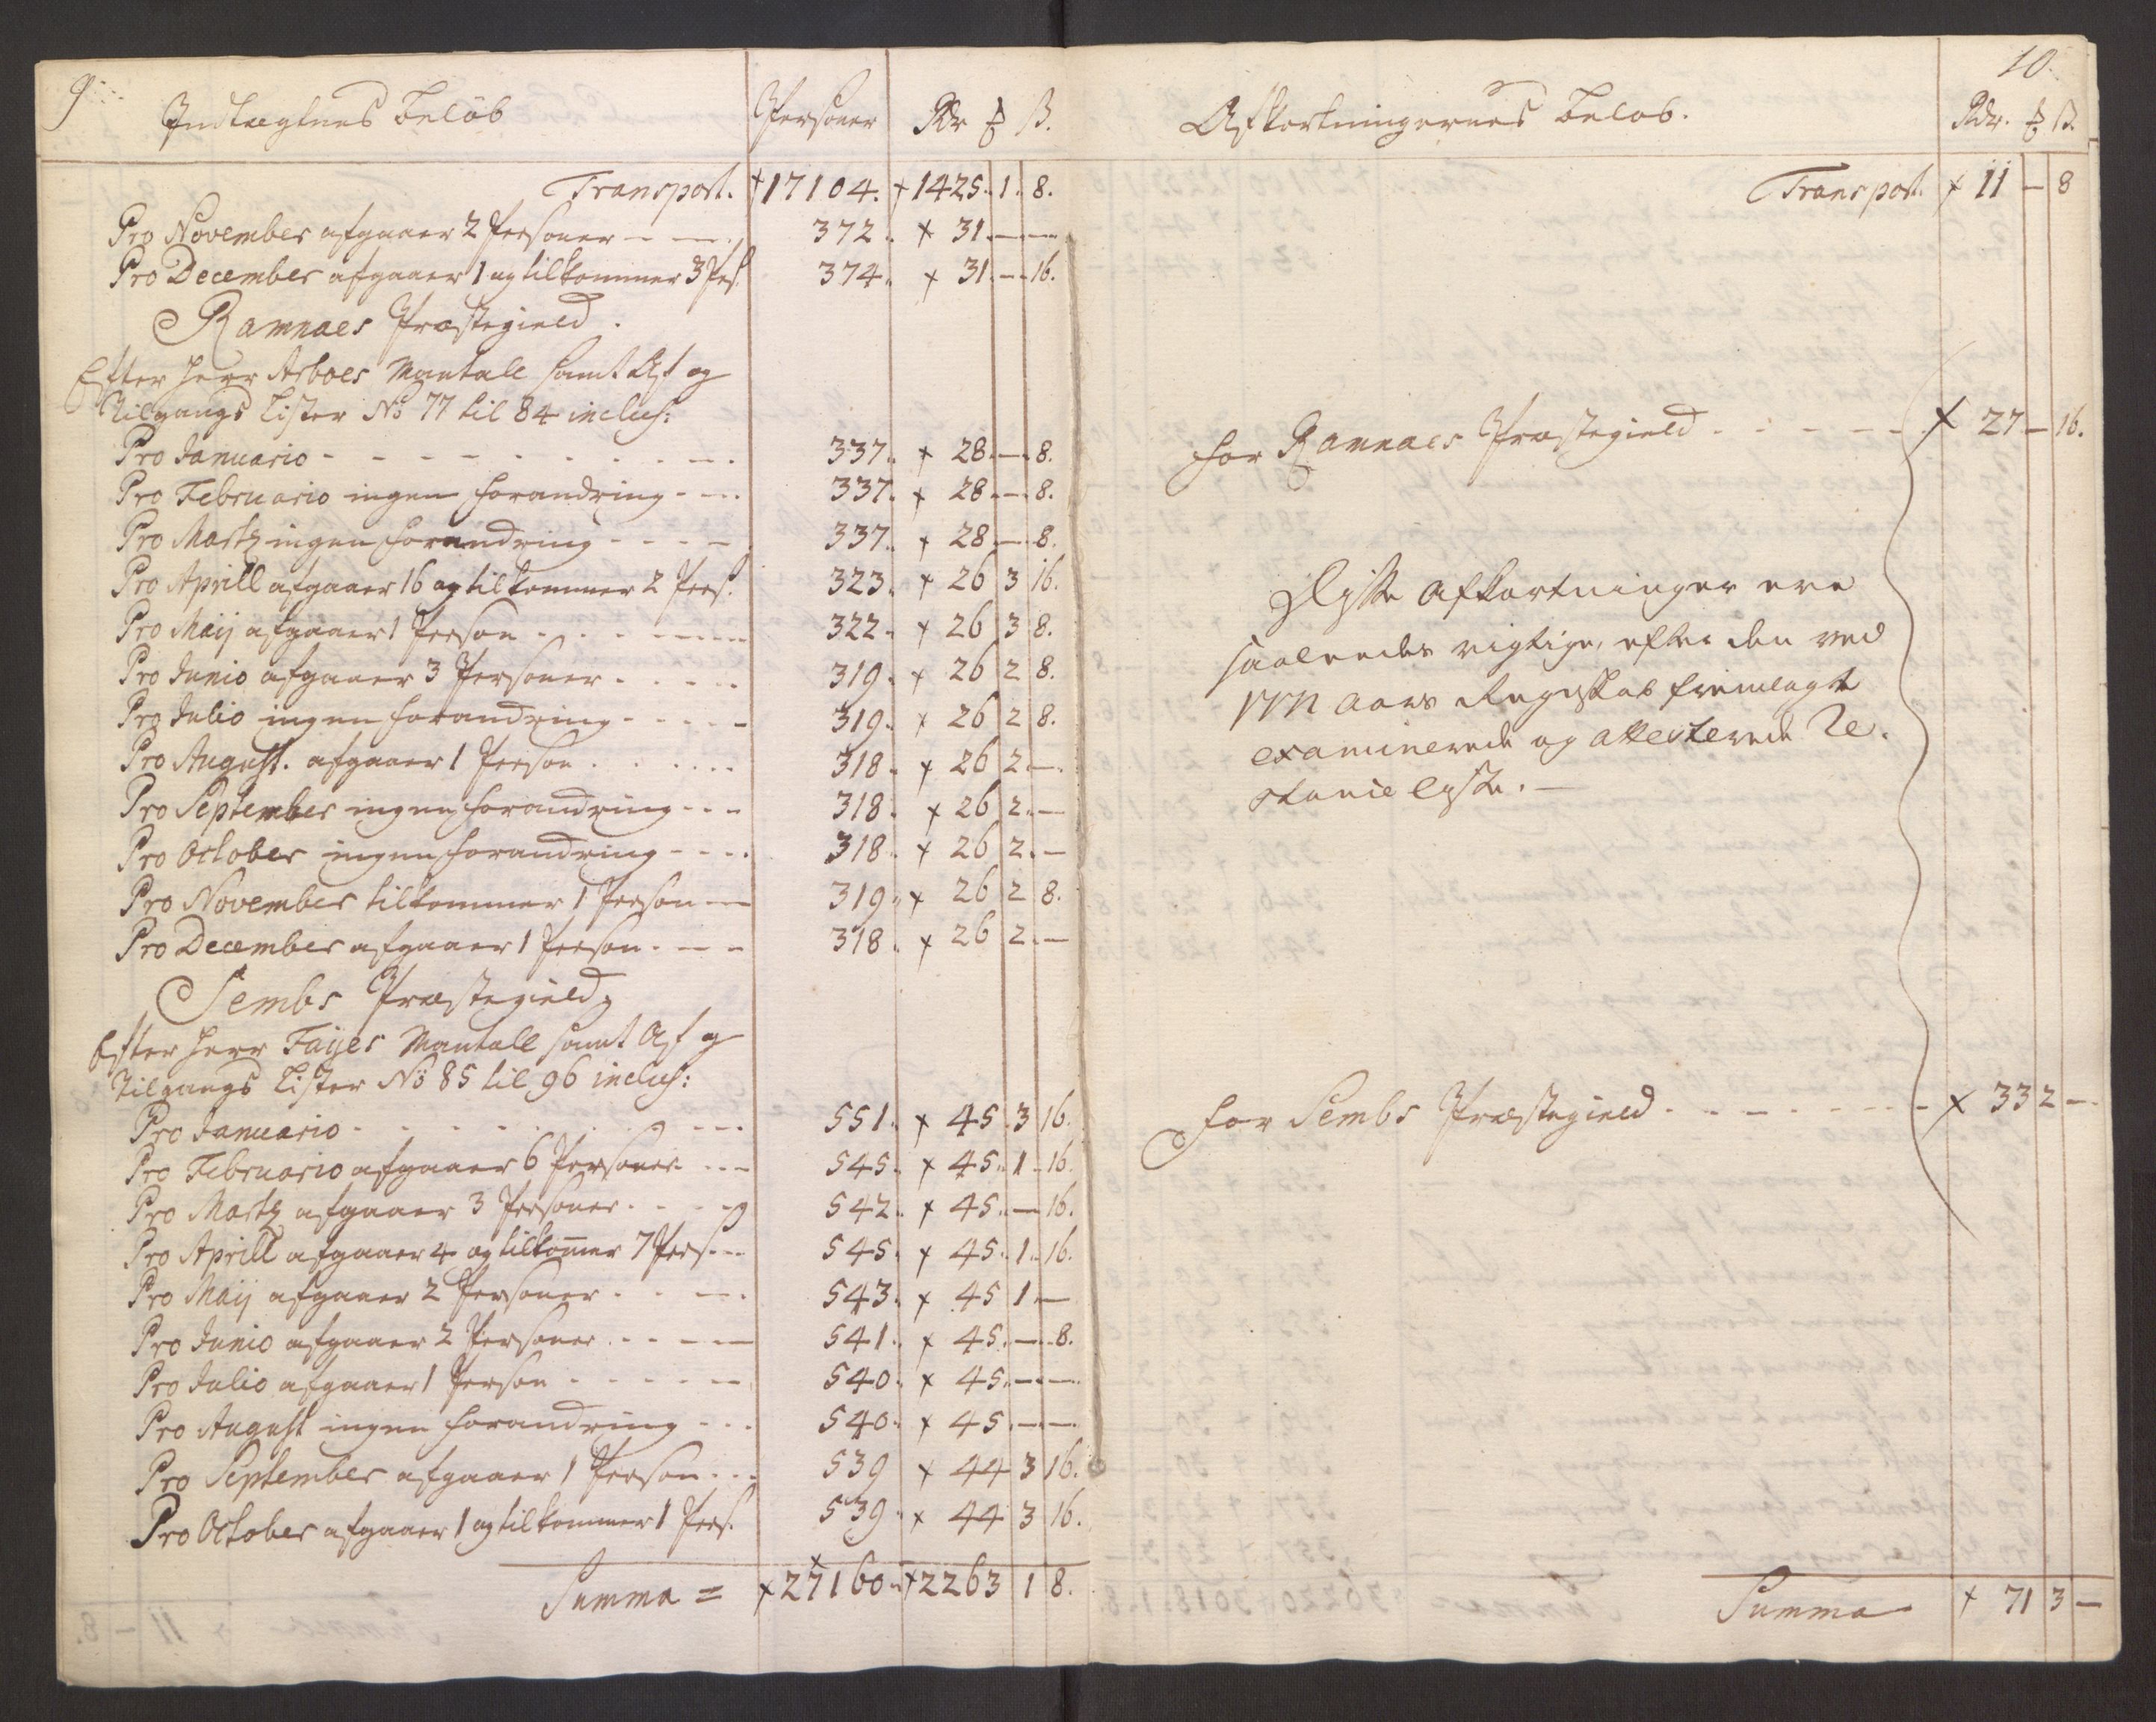 9
Indtægtnes Beløb Personer Rdr ℔ ß.
Transport. 17104. 1425. 1. 8.
Pro November afgaaer 2 Personer - - 372. 31. - -
Pro December afgaaer 1 og tilkommer 3 Pers. 374. 31. - 16.
Ramnaes Præstegield.
Efter Herr Arboes Mantall samt Af og
Tilgangs Lister No 77 til 84 inclus:
Pro Januario - - - - - 337. 28. - 8.
Pro Februario ingen forandring - - 337. 28. - 8.
Pro Martz ingen forandring - - - 337. 28. - 8.
Pro Aprill afgaaer 16 og tilkommer 2 Pers. 323. 26 3 16.
Pro Maij afgaaer 1 Person - - - 322. 26 3 8.
Pro Junio afgaaer 3 Personer - - - 319. 26 2 8.
Pro Julio ingen forandring - - - 319. 26 2 8.
Pro August. afgaaer 1 Person - - - 318. 26 2. -
Pro September ingen forandring - - - 318. 26 2. -
Pro October ingen forandring - - - 318. 26 2. -
Pro November tilkommer 1 Person - - 319. 26 2 8.
Pro December afgaaer 1 Person - - - 318. 26 2. -
Sembs Præstegield,
Efter Herr Faijes Mantall samt Af og
Tilgangs Lister No 85 til 96 inclus:
Pro Januario - - - - - 551. 45. 3 16.
Pro Februario afgaaer 6 Personer - - - 545. 45. 1. 16.
Pro Martz afgaaer 3 Personer - - - 542. 45. - 16.
Pro Aprill afgaaer 4 og tilkom̄er 7 Pers. - - 545. 45. 1. 16.
Pro Maij afgaaer 2 Personer - - - 543. 45 1 -
Pro Junio afgaaer 2 Personer - - - 541. 45. - 8.
Pro Julio afgaaer 1 Person - - - 540. 45. - -
Pro August ingen forandring - - - 540. 45. - -
Pro September afgaaer 1 Person - - - 539 44 3 16.
Pro October afgaaer 1 og tilkommer 1 Pers. 539. 44 3 16.
Summa = 27160. 2263 1 8.
10.
Afkortningernes Beløb. Rdr. ℔ ß.
Transport. 11 - 8
For Ramnaes Præstegield - - - - - 27 - 16.
Disse Afkortninger ere
saaledes rigtige, efter den ved
Aars Regnskab fremlagte
examinerede og attesterede Re-
stance liste. -
For Sembs Præstegield - - - - - 33 2 -
Summa 71 3 -